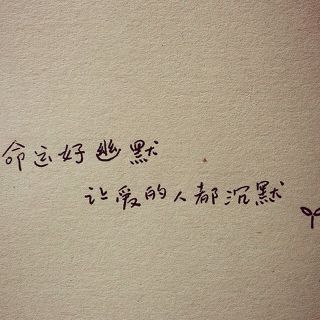 命运好幽默
让爱的人都沉默